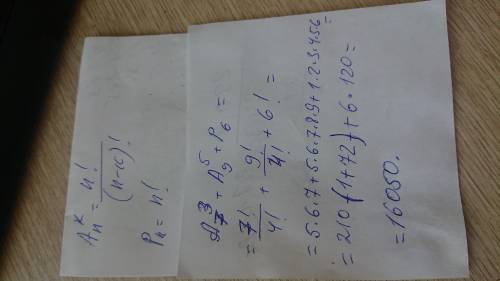 Aₙᵏ = n! / (n-k)!
Pₙ = n!
A₇³ + A₉⁵ + P₆ =
= 7!/4! + 9!/4! + 6! =
= 5·6·7 + 5·6·7·8·9 + 1·2·3·4·5·6
= 210 (1+72) + 6·120 =
= 16050.